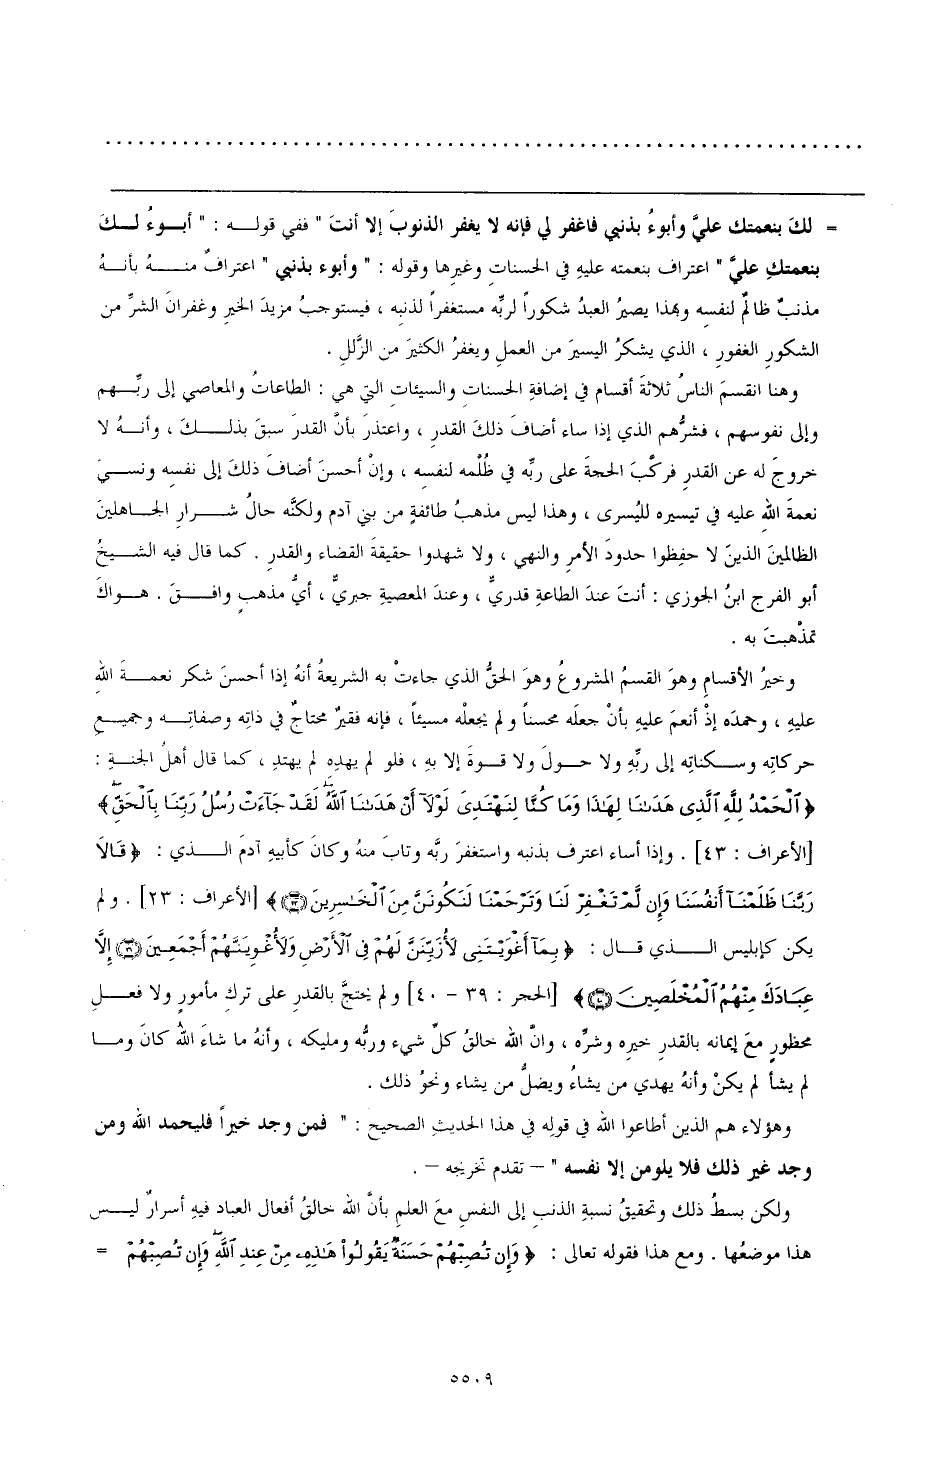 = لكَ بنعمتك عليَّ وأبوءُ بذنبي فاغفر لي فإنه لا يغفر الذنوبَ إلا أنتَ " ففي قولـــه : " أبــوءُ لــكَ
بنعمتكِ عليَّ " اعتراف بنعمته عليهِ في الحسناتِ وغيرها وقوله : " وأبوء بذنبي " اعترافٌ منـــهُ بأنــهُ
مذنبٌ ظالمٌ لنفسه وبهذا يصيرُ العبدُ شكوراً لربِّه مستغفراً لذنبه ، فيستوجبُ مزيدَ الخيرِ وغفرانَ الشرِّ من
الشكورِ الغفورِ ، الذي يشكرُ اليسيرَ من العملِ ويغفرُ الكثيرَ من الزَّللِ .
وهنا انقسمَ الناسُ ثلاثةَ أقسام في إضافةِ الحسناتِ والسيئاتِ التي هي : الطاعاتُ والمعاصي إلى ربِّــهم
وإلى نفوسهم ، فشرُّهم الذي إذا ساء أضاف ذلكَ القدر ، واعتذر بأنَّ القدر سبقَ بذلـــكَ ، وأنــهُ لا
خروجَ له عن القدرِ فركَّبَ الحجةَ على ربِّه في ظُلْمه لنفسه ، وإنْ أحسنَ أضافَ ذلكَ إلى نفسه ونســيَ
نعمةَ الله عليه في تيسيره لليُسرى ، وهذا ليس مذهبُ طائفةٍ من بني آدم ولكنَّه حالُ شــرارِ الجــاهلين
الظالمينَ الذينَ لا حفِظوا حدودَ الأمرِ والنهي ، ولا شهدوا حقيقةَ القضاء والقدرِ . كما قال فيه الشــيخُ
أبو الفرج ابنُ الجوزي : أنتَ عندَ الطاعةِ قدريٌّ ، وعندَ المعصيةِ جبريٌّ ، أيُّ مذهبٍ وافــقَ . هــواكَ
تمذْهبتَ به .
وخيرُ الأقسامِ وهوَ القسمُ المشروعُ وهوَ الحقُّ الذي جاءتْ به الشريعةُ أنهُ إذا أحسنَ شكر نعمــةَ اللهِ
عليهِ ، وحمدَه إذْ أنعمَ عليهِ بأنْ جعلَه محسناً و لم يجعلْه مسيئاً ، فإنه فقيرٌ محتاجٌ في ذاتِه وصفاتِــه وجميــعِ
حركاتِه وســكناتِه إلى ربِّهِ ولا حــولَ ولا قــوةَ إلا بهِ ، فلو لم يهدِه لم يهتدِ ، كما قال أهلُ الجنــةِ :
﴿ ٱلْحَمْدُ لِلَّهِ ٱلَّذِى هَدَىٰنَا لِهَٰذَا وَمَا كُنَّا لِنَهْتَدِىَ لَوْلَآ أَنْ هَدَىٰنَا ٱللَّهُ ۖ لَقَدْ جَآءَتْ رُسُلُ رَبِّنَا بِٱلْحَقِّ ۖ ﴾
[الأعراف : ٤٣] . وإذا أساء اعترف بذنبه واستغفرَ ربَّه وتابَ منهُ وكانَ كأبيهِ آدمَ الــذي : ﴿ قَالَا
رَبَّنَا ظَلَمْنَآ أَنفُسَنَا وَإِن لَّمْ تَغْفِرْ لَنَا وَتَرْحَمْنَا لَنَكُونَنَّ مِنَ ٱلْخَٰسِرِينَ ﴿٢٣﴾ ﴾ [الأعراف : ٢٣] . و لم
يكن كإبليس الــذي قــال : ﴿ بِمَآ أَغْوَيْتَنِى لَأُزَيِّنَنَّ لَهُمْ فِى ٱلْأَرْضِ وَلَأُغْوِيَنَّهُمْ أَجْمَعِينَ ﴿٣٩﴾ إِلَّا
عِبَادَكَ مِنْهُمُ ٱلْمُخْلَصِينَ ﴿٤٠﴾ ﴾ [الحجر : ٣٩ – ٤٠] و لم يحتجَّ بالقدرِ على تركِ مأمورٍ ولا فعــلِ
محظورٍ معَ إيمانه بالقدرِ خيره وشرِّه ، وانَّ الله خالقُ كلِّ شيء وربُّه ومليكه ، وأنهُ ما شاءَ اللهُ كانَ ومــا
لم يشأ لم يكنْ وأنهُ يهدي من يشاءُ ويضلُّ من يشاء ونحوُ ذلك .
وهؤلاء هم الذين أطاعوا الله في قولِه في هذا الحديثِ الصحيحِ : " فمن وجد خيراً فليحمد الله ومن
وجد غير ذلك فلا يلومن إلا نفسه " – تقدم تخريجه – .
ولكن بسطُ ذلك وتحقيقُ نسبةِ الذنبِ إلى النفسِ معَ العلمِ بأنَّ الله خالقُ أفعال العبادِ فيهِ أسرارٌ ليــس
هذا موضعُها . ومع هذا فقوله تعالى : ﴿ وَإِن تُصِبْهُمْ حَسَنَةٌ يَقُولُوا۟ هَٰذِهِۦ مِنْ عِندِ ٱللَّهِ ۖ وَإِن تُصِبْهُمْ =
٥٥٠٩